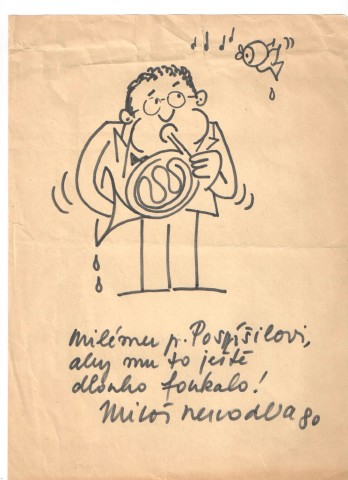 milému p. Pospíšilovi,
aby mu to ještě
dlouho foukalo!
Miloš Nesvadba 80